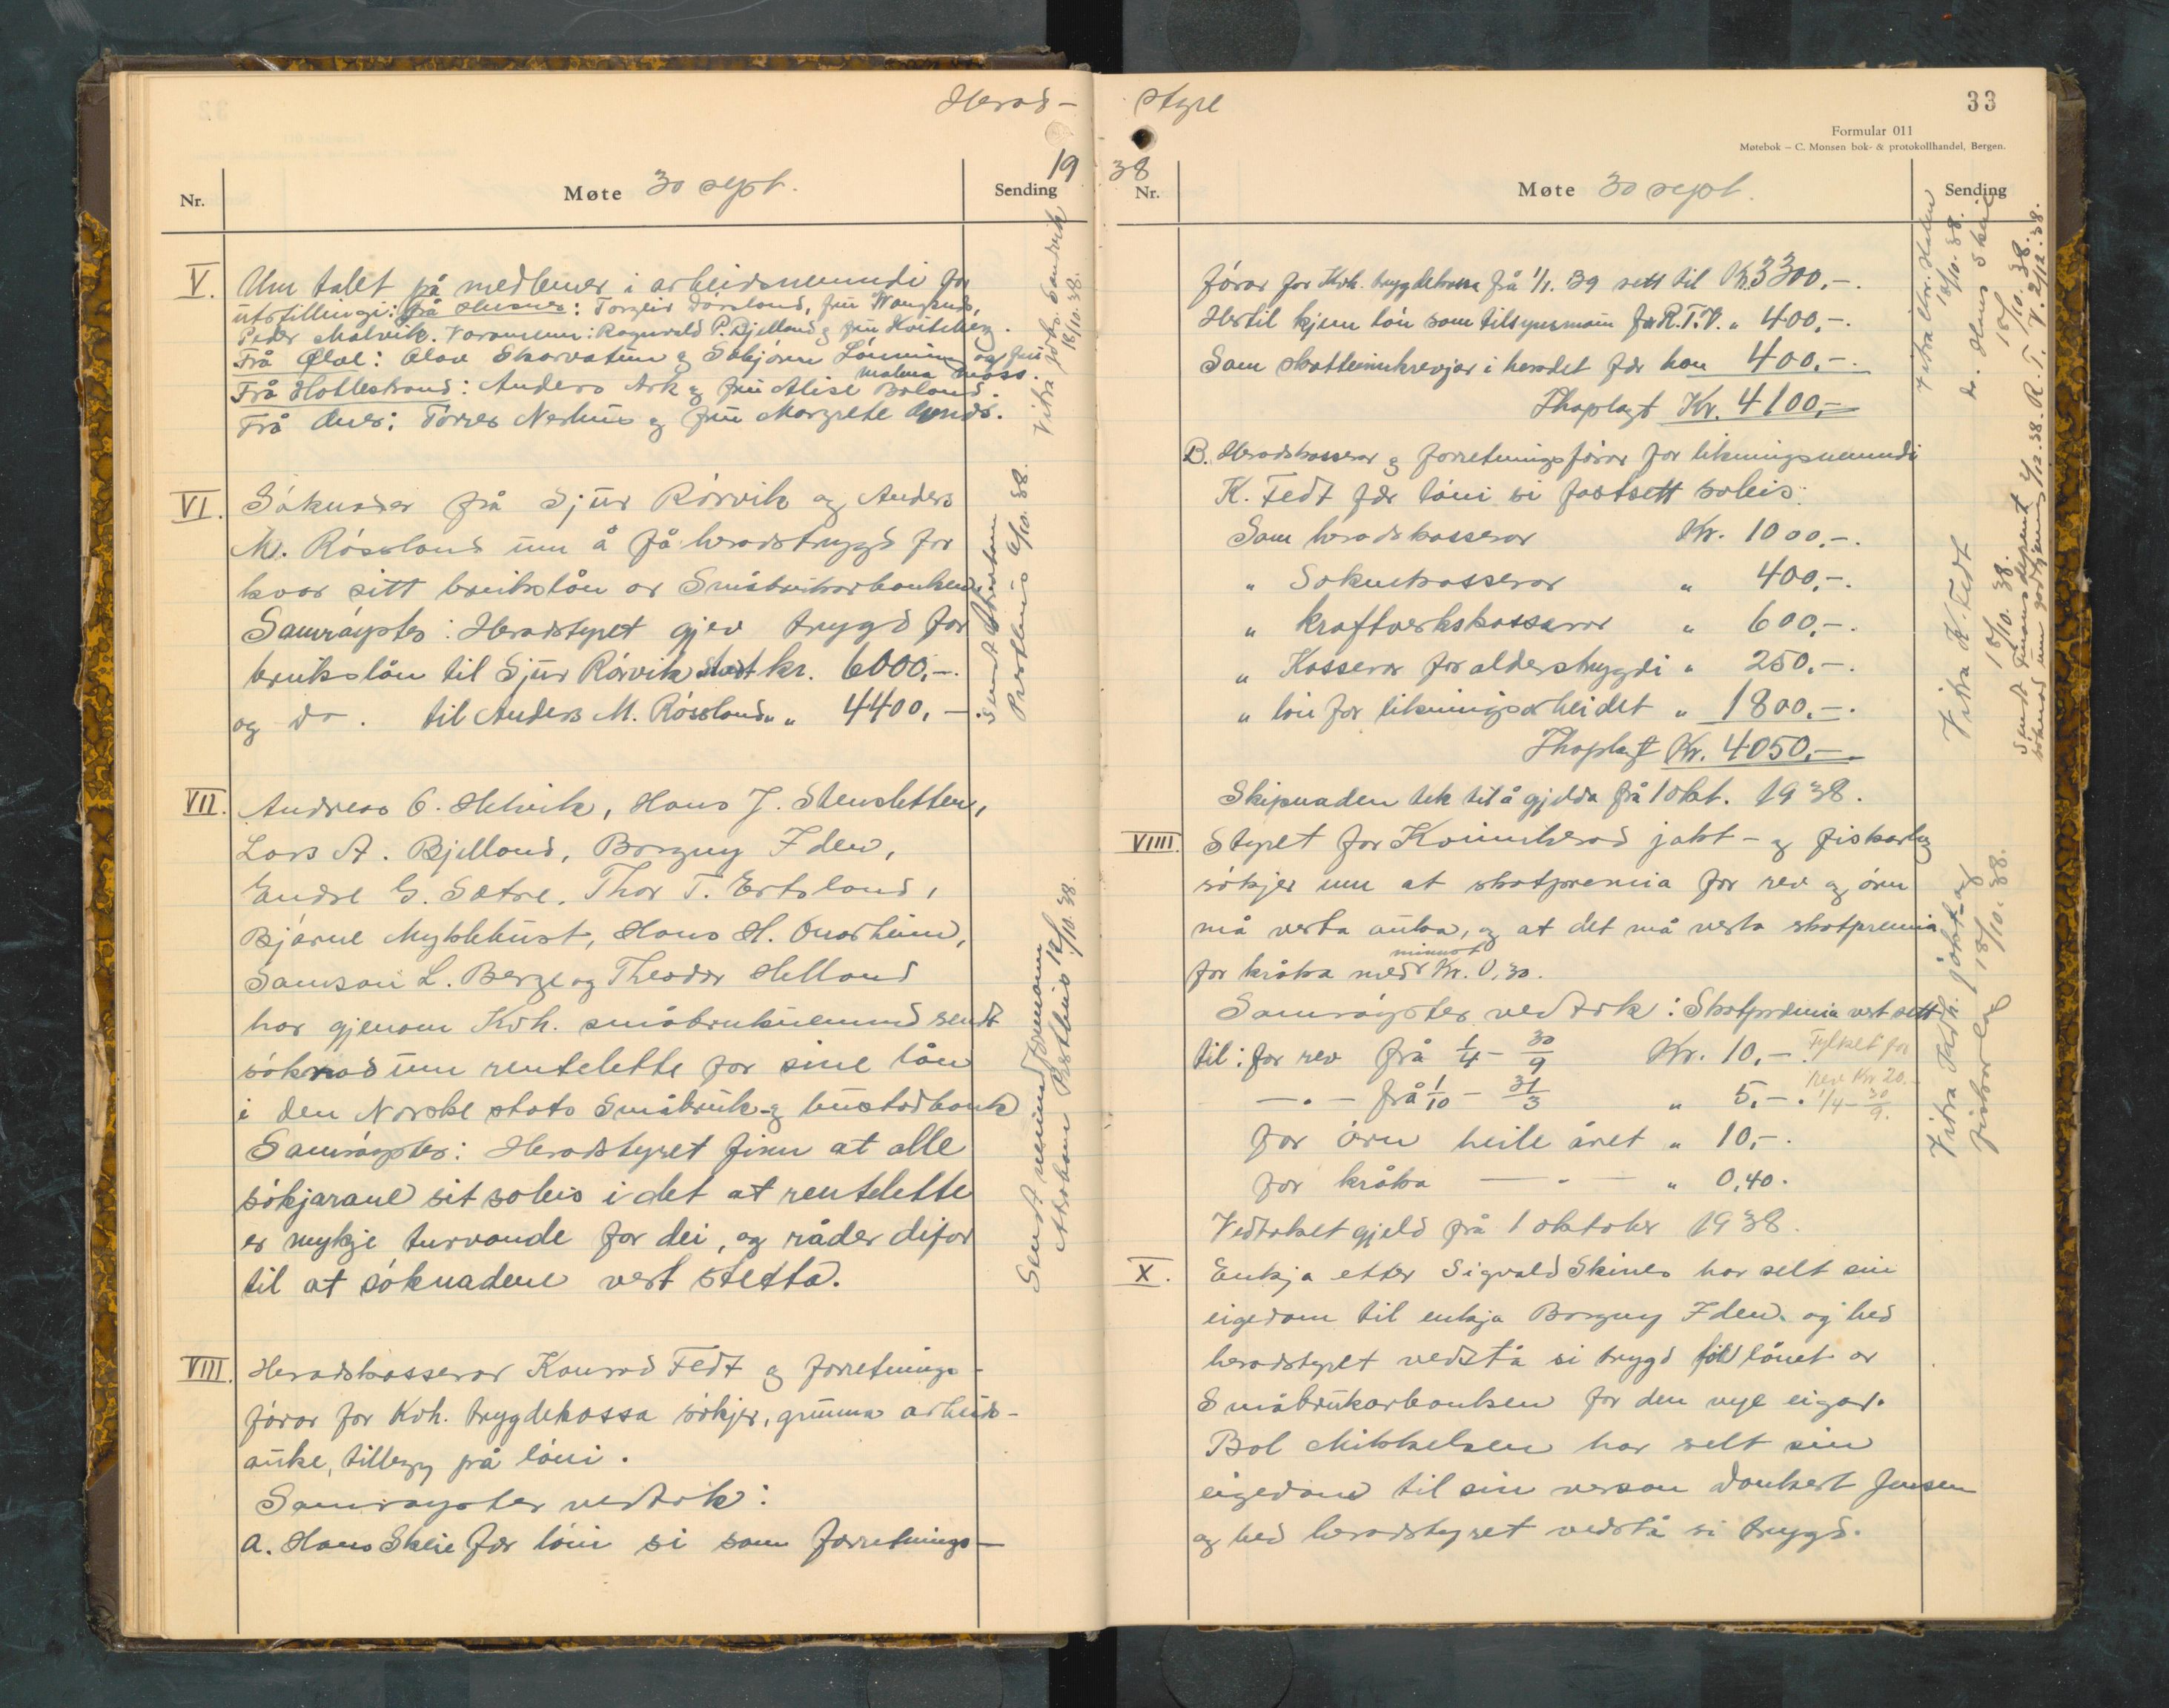 Herad-
Nr.
Møte 30 sept.
Sending
19
V. Um talet på medlemer i arbeidsnemndi for
utstillingi: frå Husnes: Torgeir Dørsland, fru Wangsnes,
Peder Malvik. Varamenn: Ragnvald P. Bjelland og fru Kviteberg.
Frå Ølve: Olav Skarvatun og Sebjørn Lønning og fru
Malena Moss.
Frå Hatlestrand: Anders Ark og fru Alise Boland.
Frå Ænes: Torres Nerhus og fru Margrete Ænes.
Vitra fork. Sandvik
18/10.38.
VI. Søknader frå Sjur Rørvik og Anders
M. Røssland um å få heradstrygd for
kvar sitt brukslån or Småbrukarbanken.
Samrøystes: Heradstyret gjev trygd for
brukslån til Sjur Rørvik stort kr. 6000,-.
og do. til Anders M. Røssland " " 4400,-.
Sendt Abraham
Prestlius 6/10.38.
VII. Andreas O. Helvik, Hans J. Stensletten,
Lars A. Bjelland, Borgny Iden,
Endre G. Sætre, Thor T. Ertsland,
Bjarne Myklebust, Hans H. Onarheim,
Samson L. Berge og Theodor Helland
har gjenom Kvh. småbruknemnd sendt
søknad um rentelette for sine lån
i den Norske stats Småbruk- og bustadbank
Samrøystes: Heradstyret finn at alle
søkjarane sit soleis i det at rentelette
er mykje turvande for dei, og råder difor
til at søknadene vert stetta.
Sendt nemndformann
Abraham Prestlius 12/10.38.
VIII. Heradskasserar Konrad Fedt og forretnings-
førar for Kvh. trygdekassa søkjer, grunna arbeids-
auke, tillegg på løni.
Samrøystes vedtok:
A. Hans Skeie fær løni si som forretnings-
styre
33
Formular 011
Møtebok – C. Monsen bok- & protokollhandel, Bergen.
38
Nr.
Møte 30 sept.
Sending
førar for Kvh. trygdekassa frå 1/1. 39 sett til Kr. 3300,-.
Hertil kjem løn som tilsynsmann for R.T.V. " 400,-.
Som skatteinnkrevjar i heradet fær han 400,-.
Ihoplagt Kr. 4100,-
B. Heradskasserar og forretningsførar for likningsnemndi
K. Fedt fær løni si fastsett soleis:
Som heradskasserar Kr. 1000,-.
" Soknekasserar " 400,-.
" Kraftverkskasserar " 600,-.
" Kasserar for alderstrygdi " 250,-.
" løn for likningsarbeidet " 1800,-.
Ihoplagt Kr. 4050,-.
Skipnaden tek til å gjelda frå 1 okt. 1938.
18/10.38.
18/10.38.
Vitra K. Fedt
18/10.38.
VIIII. Styret for Kvinnherad jakt- og fiskarlag
søkjer um at skotpremia for rev og ørn
må verta auka, og at det må verta skotpremia
minnst
for kråka med Kr. 0,30.
Samrøystes vedtok: Skotpremia vert sett
til: for rev frå 1/4 - 30/9 Kr. 10,-. Fylket for
rev Kr 20.-
— " — frå 1/10 - 31/3 " 5,-. 1/4 - 30/9.
for ørn heile året " 10,-.
for kråka — " — " 0,40.
Vedtaket gjeld frå 1 oktober 1938.
Vitra Kvh. jakt- og
fiskarlag 18/10.38.
X. Enkja etter Sigvald Skines har selt sin
eigedom til enkja Borgny Iden og bed
heradstyret vedstå si trygd for lånet or
Småbrukarbanken for den nye eigar.
Bol Mikkelsen har selt sin
eigedom til sin verson Dankert Jensen
og bed heradstyret vedstå si trygd.